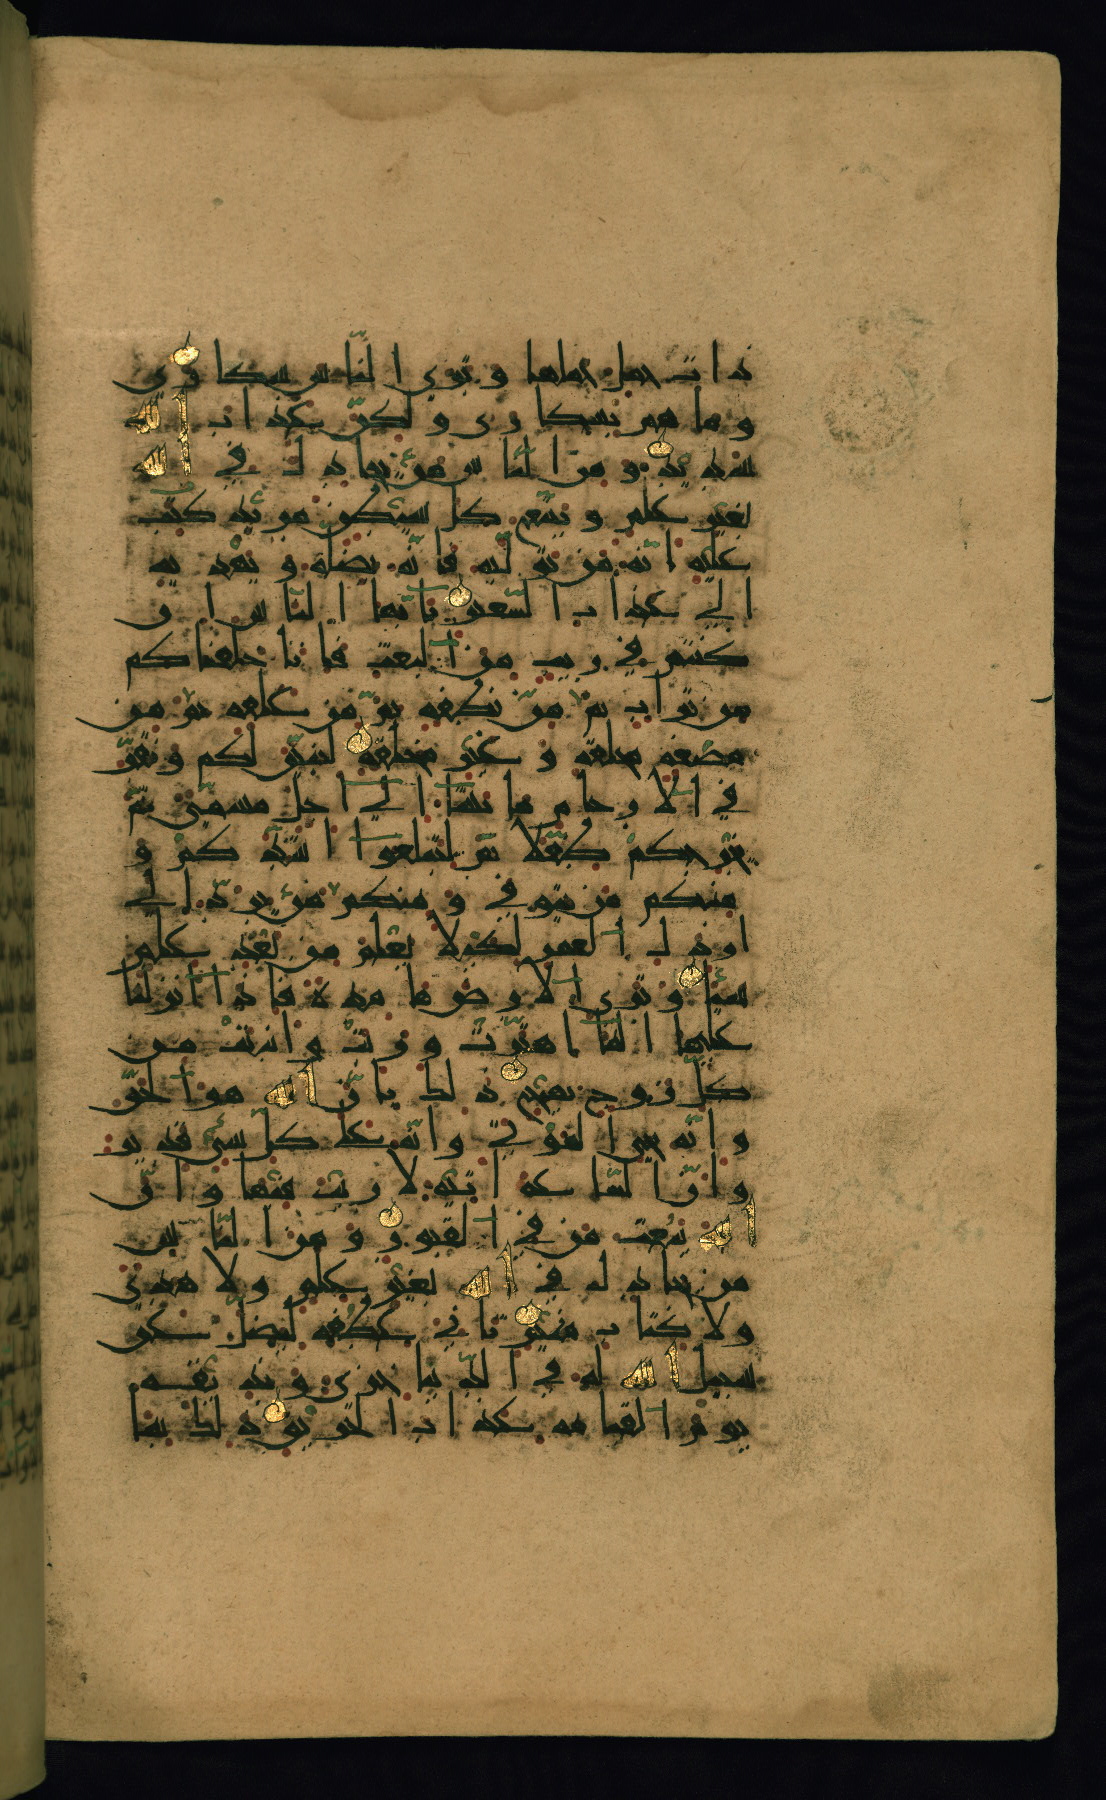 ذات حمل حملها وترى الناس سكارى
وما هم بسكارى ولكنّ عذاب الله
شديد ومن الناس من يجادل في الله
بغير علم ويتّبع كل شيطن مريد كتب
عليه انّه من تولّيه فانّه يضلّه ويهديه
الى عذاب السّعير يا يّها النّاس ان
كنتم في ريب من البعث فانا خلقناكم
من تراب ثم من نطفة ثمّ من علقة ثم من
مضغة مخلقة وغير مخلقة لنبيّن لكم ونقرّ
في الارحام ما نشا الى اجل مسمّى ثمّ
نخرجكم طفلا ثمّ لتبلغوا اشدّكم و
منكم من يتوفى ومنكم من يردّ الى
ارذل العمر لكيلا يعلم من بعد علم
شيئا وترى الارض هامدة فاذا انزلنا
عليها الما اهتزّت وربت وانبتت من
كلّ زوج بهيج ذلك بانّ الله هو الحقّ
وانّه يحي الموتى وانّه على كلّ شي قدير
وانّ السّاعة اتية لا ريب فيها وانّ
الله يبعث من في القبور ومن النّاس
من يجادل في الله بغير علم ولا هدى
ولا كتاب منير ثاني عطفه ليضلّ عن
سبيل الله له في الدّنيا خزي ونذيقه
يوم القيامة عذاب الحريق ذلك بما